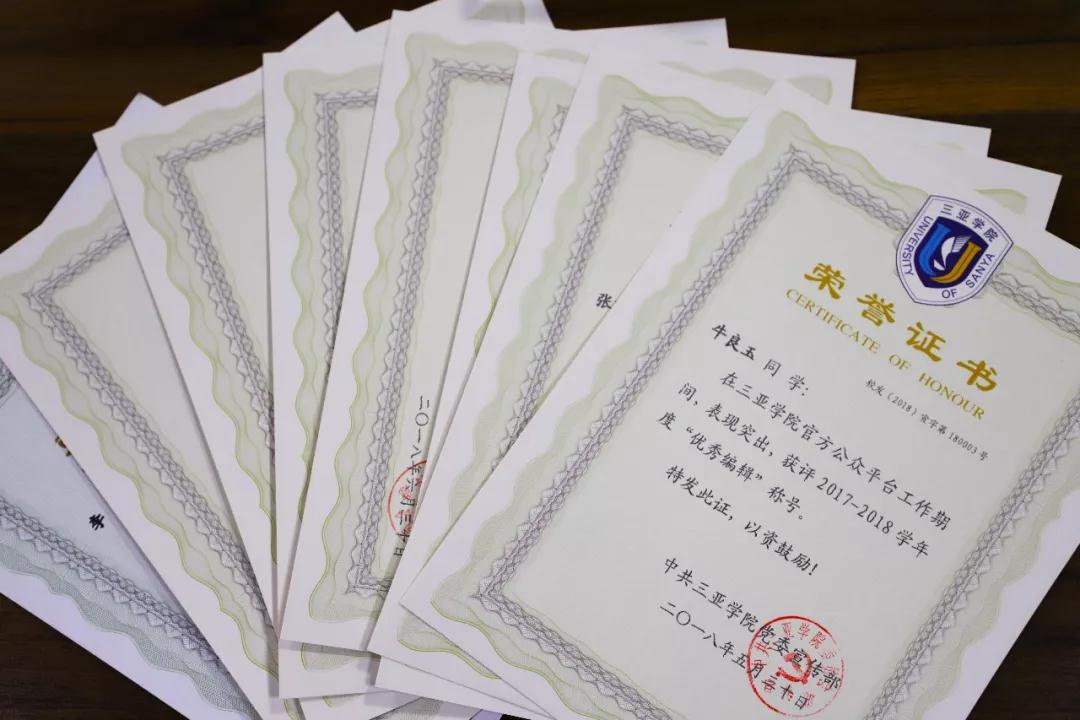 三亚学院
UNIVERSITY OF SANYA
荣誉证书
CERTIFICATE OF HONOUR
校发（2018）宣字第180003号
牛良五 同 学：
在三亚学院官方公众平台工作期
间，表现突出，获评2017-2018学年
度“优秀编辑”称号。
特发此证，以资鼓励！
中共三亚学院党委宣传部
二〇一八年五月三十日
张
二〇一八年
李